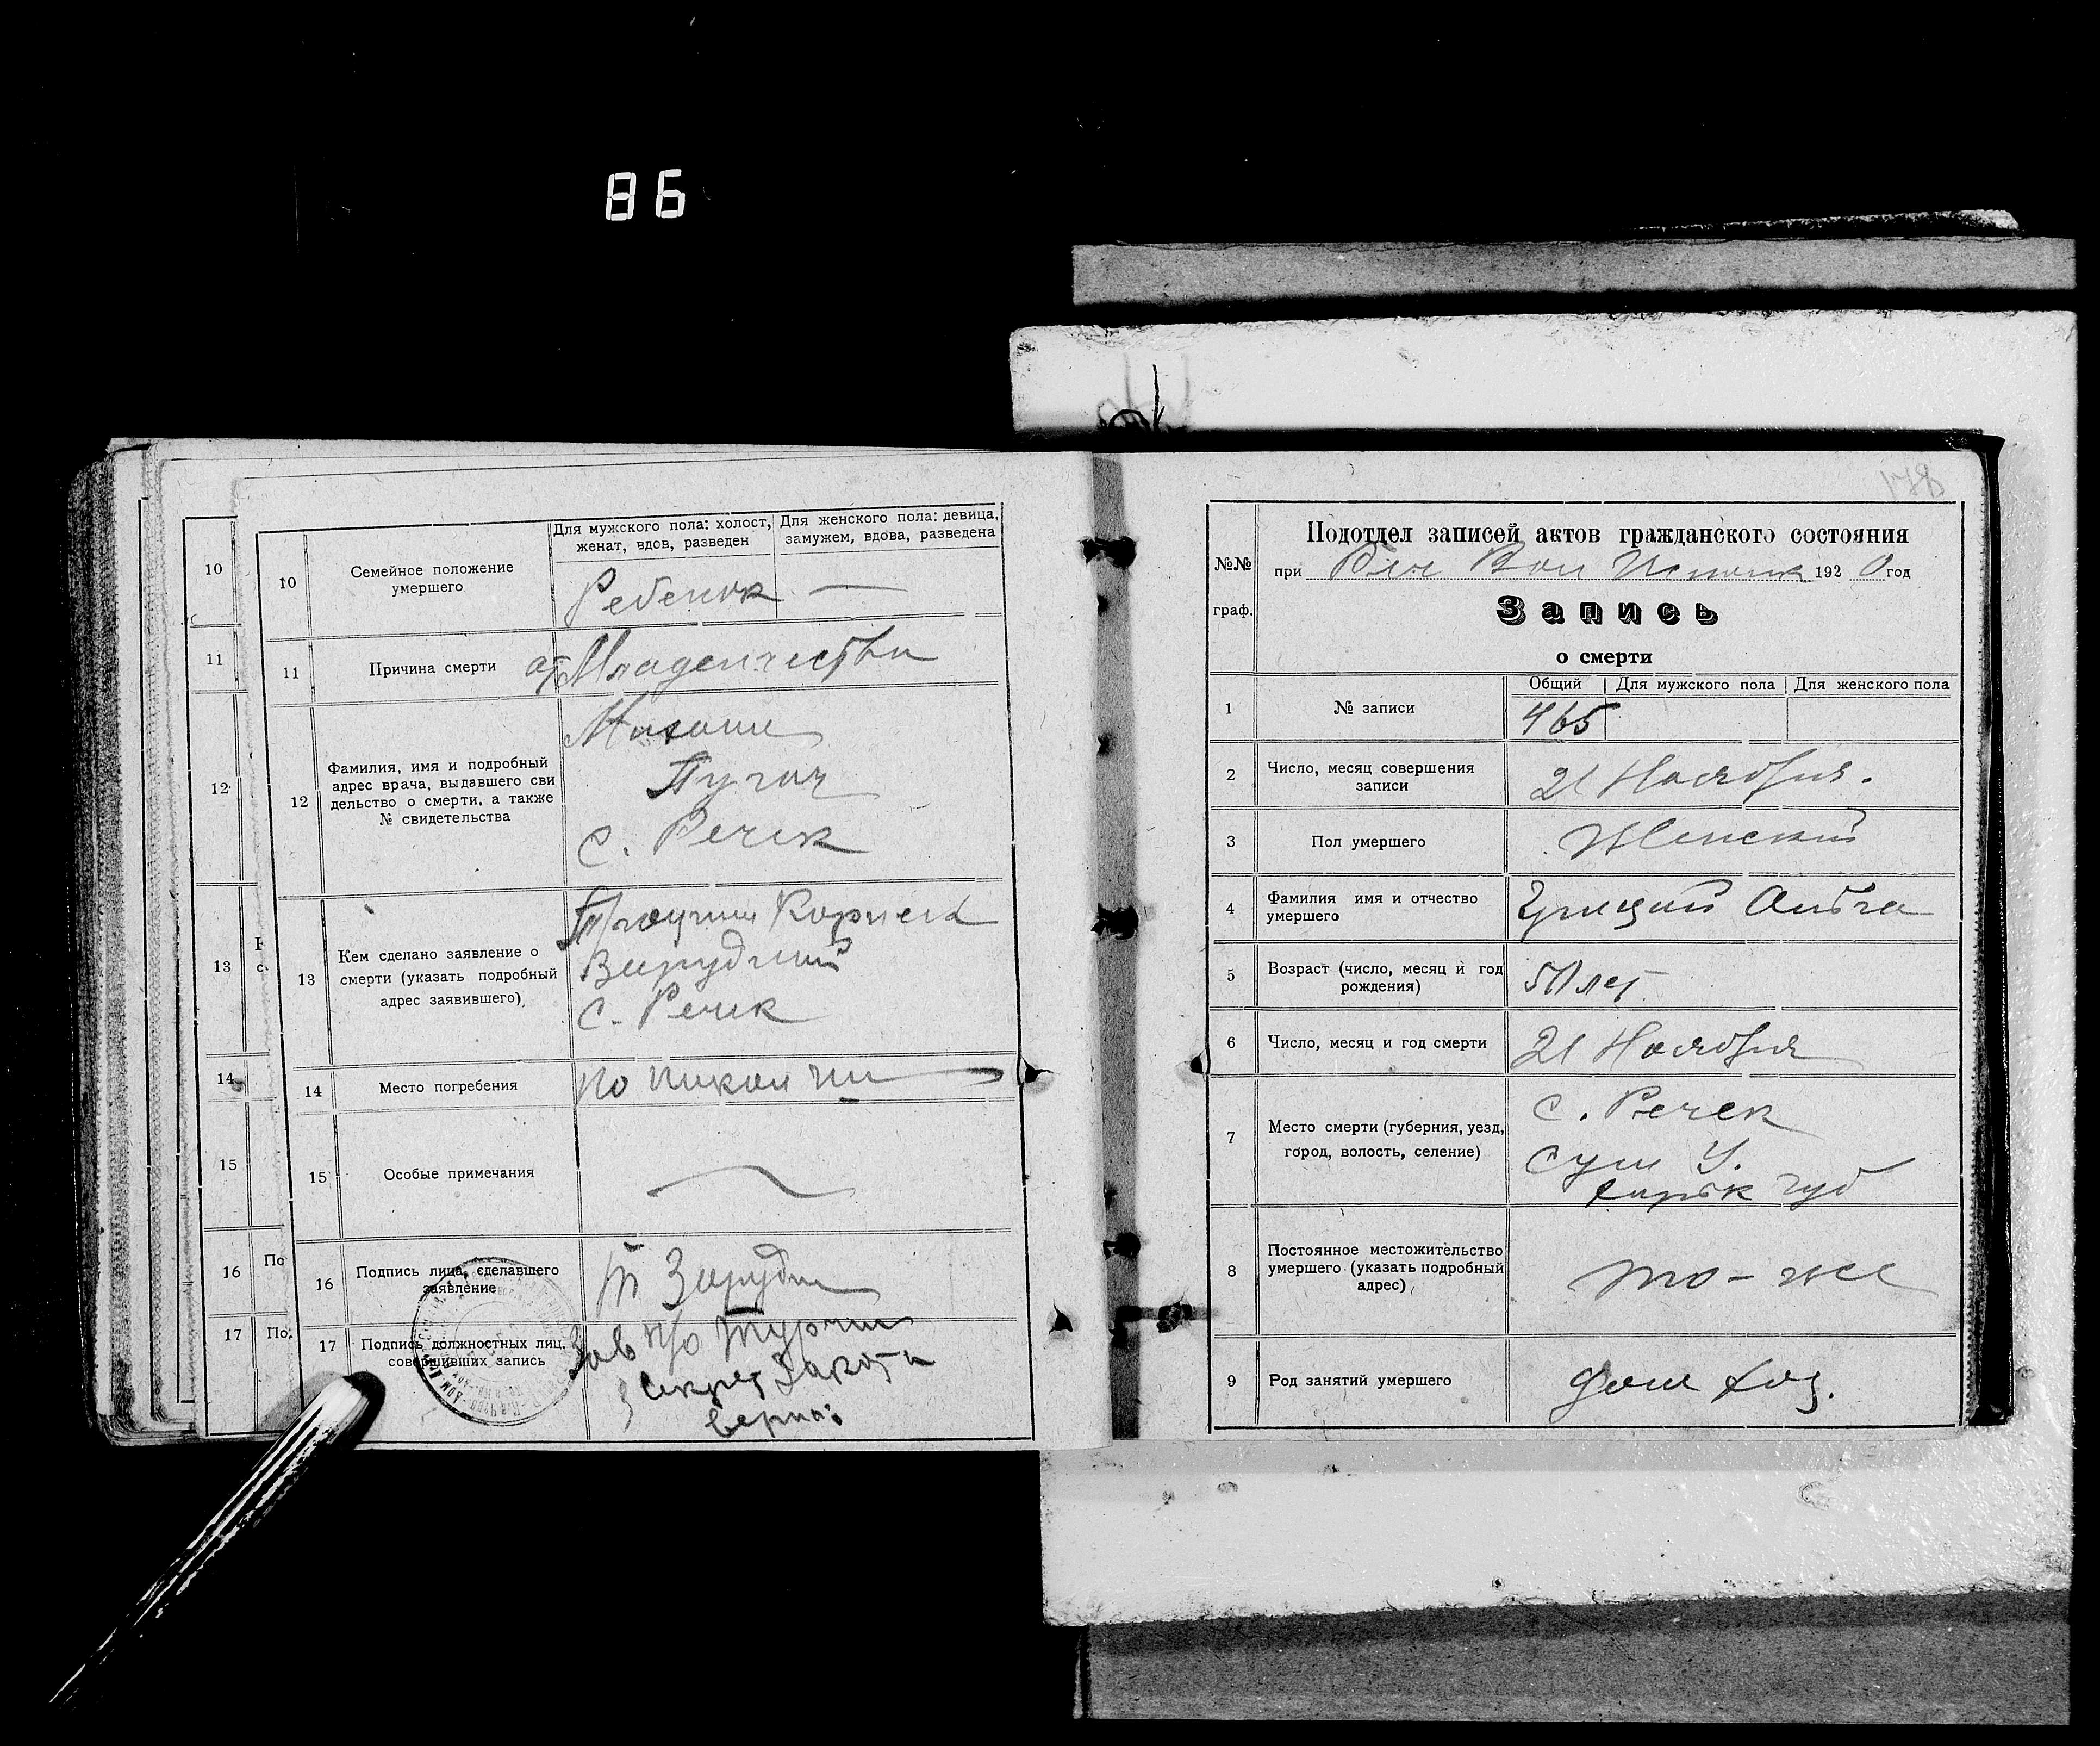 86
10
11
12
13
14
15
16
По
17
По
10
Семейное положение
умершего
Для мужского пола: холост,
женат, вдов, разведен
Для женского пола: девица,
замужем, вдова, разведена
Ребенок —
11
Причина смерти
от Младенчества
12
Фамилия, имя и подробный
адрес врача, выдавшего сви
дельство о смерти, а также
№ свидетельства
Пугач
с. Речек
13
Кем сделано заявление о
смерти (указать подробный
адрес заявившего)
Зарудний
с. Речек
14
Место погребения
15
Особые примечания
16
Подпись лица, сделавшего
заявление
17
Подпись должностных лиц,
совершивших запись
Зав п/о
Секрет
верно:
Подотдел записей актов гражданского состояния
№№
граф.
при Реч Вол Исполк 1920 год
Запись
о смерти
1
№ записи
Общий
Для мужского пола
Для женского пола
465
2
Число, месяц совершения
записи
21 Ноября.
3
Пол умершего
Женский
4
Фамилия имя и отчество
умершего
5
Возраст (число, месяц и год
рождения)
50 лет
6
Число, месяц и год смерти
21 Ноября
7
Место смерти (губерния, уезд,
город, волость, селение)
с. Речек
Сум У.
Харьк губ
8
Постоянное местожительство
умершего (указать подробный
адрес)
то-же
9
Род занятий умершего
Дом хоз.